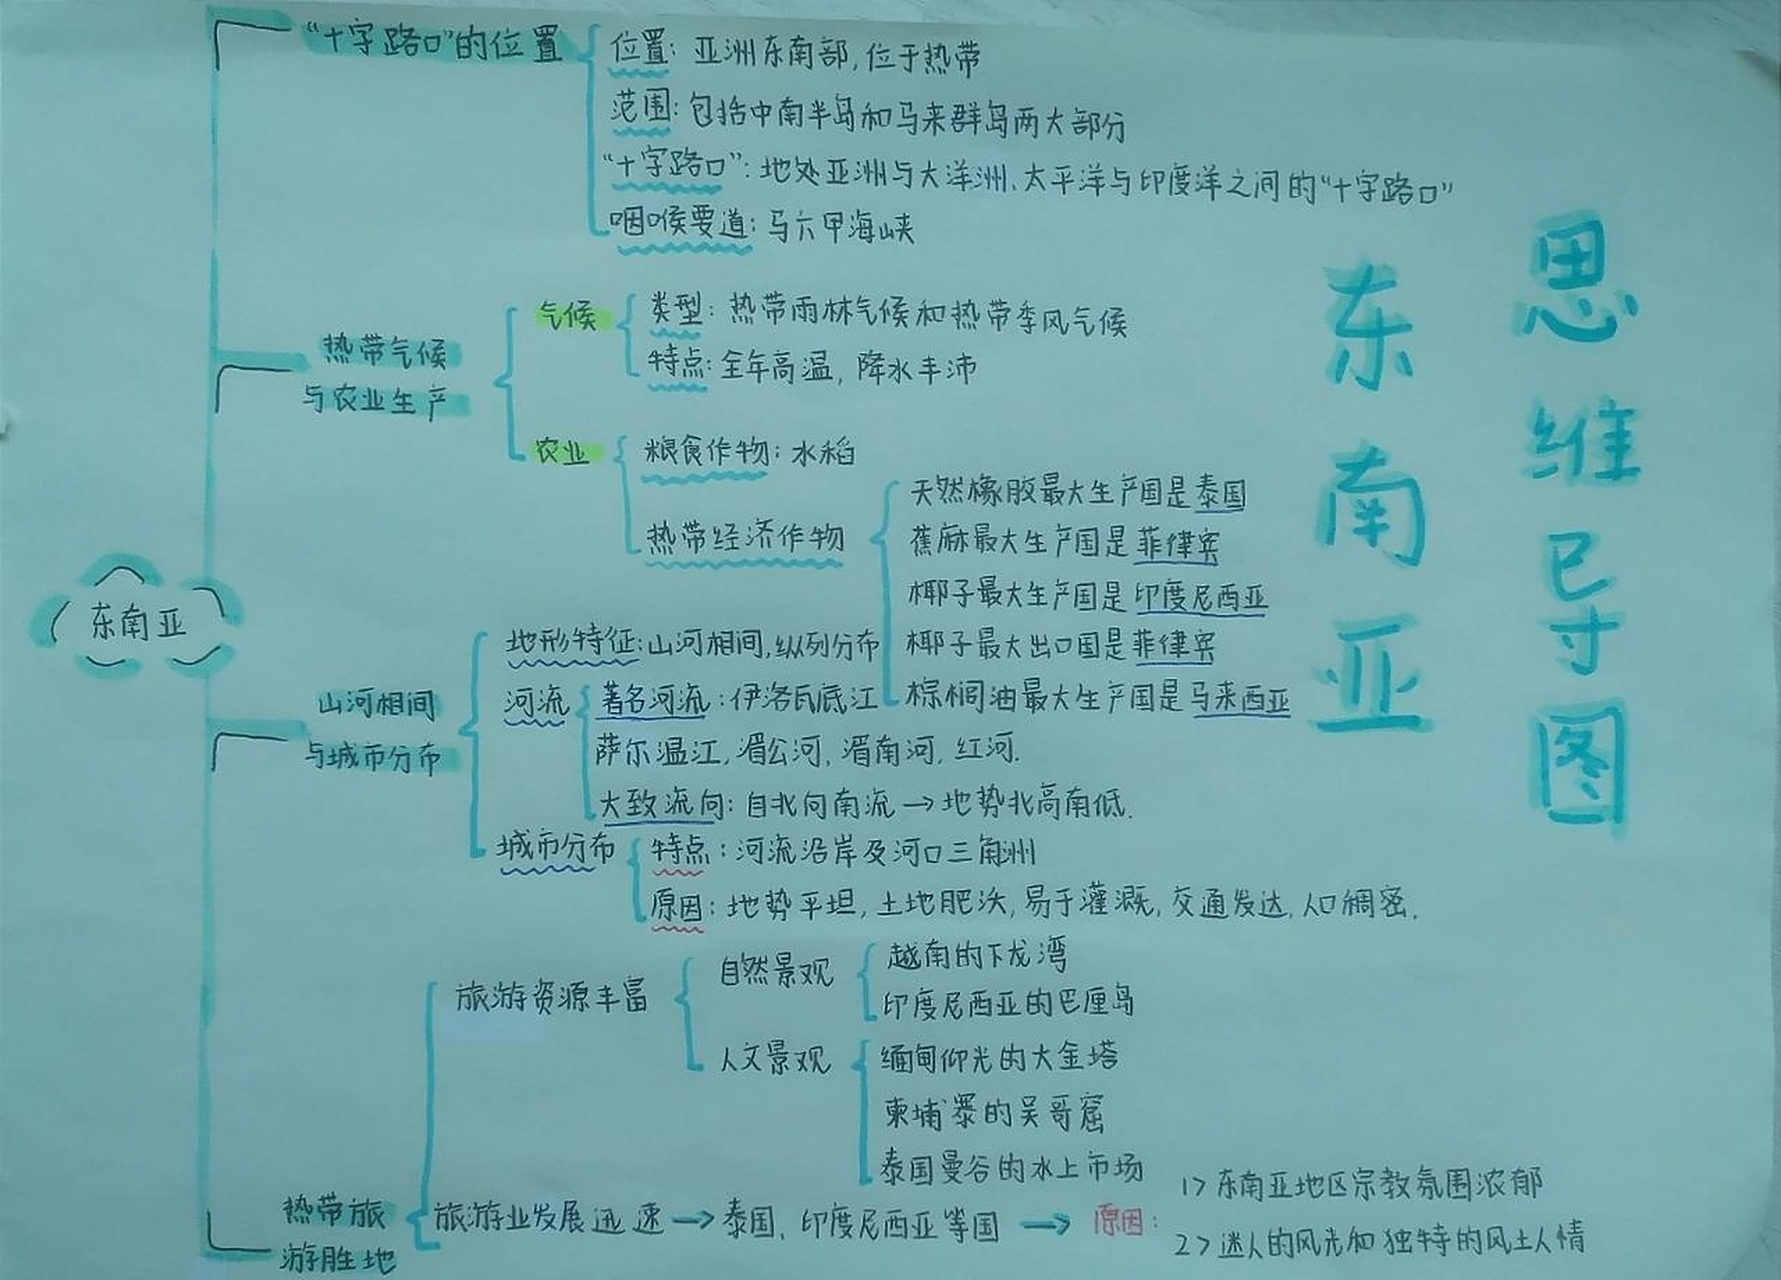 "十字路口"的位置
位置：亚洲东南部,位于热带
范围：包括中南半岛和马来群岛两大部分
"十字路口"：地处亚洲与大洋洲、太平洋与印度洋之间的"十字路口"
咽喉要道：马六甲海峡
热带气候
与农业生产
气候
类型：热带雨林气候和热带季风气候
特点：全年高温，降水丰沛
农业
粮食作物：水稻
热带经济作物
天然橡胶最大生产国是泰国
蕉麻最大生产国是菲律宾
椰子最大生产国是印度尼西亚
椰子最大出口国是菲律宾
棕榈油最大生产国是马来西亚
东南亚
山河相间
与城市分布
地形特征：山河相间,纵列分布
河流
著名河流：伊洛瓦底江
萨尔温江,湄公河,湄南河,红河.
大致流向：自北向南流→地势北高南低.
城市分布
特点：河流沿岸及河口三角洲
原因：地势平坦,土地肥沃,易于灌溉,交通发达,人口稠密.
热带旅
游胜地
旅游资源丰富
自然景观
越南的下龙湾
印度尼西亚的巴厘岛
人文景观
缅甸仰光的大金塔
柬埔寨的吴哥窟
泰国曼谷的水上市场
旅游业发展迅速→泰国、印度尼西亚等国→原因：
1>东南亚地区宗教氛围浓郁
2>迷人的风光和独特的风土人情
东南亚
思维导图